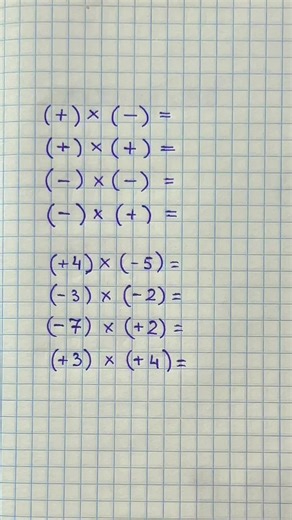 (+) × (-) =
(+) × (+) =
(-) × (-) =
(-) × (+) =
(+4) × (-5) =
(-3) × (-2) =
(-7) × (+2) =
(+3) × (+4) =